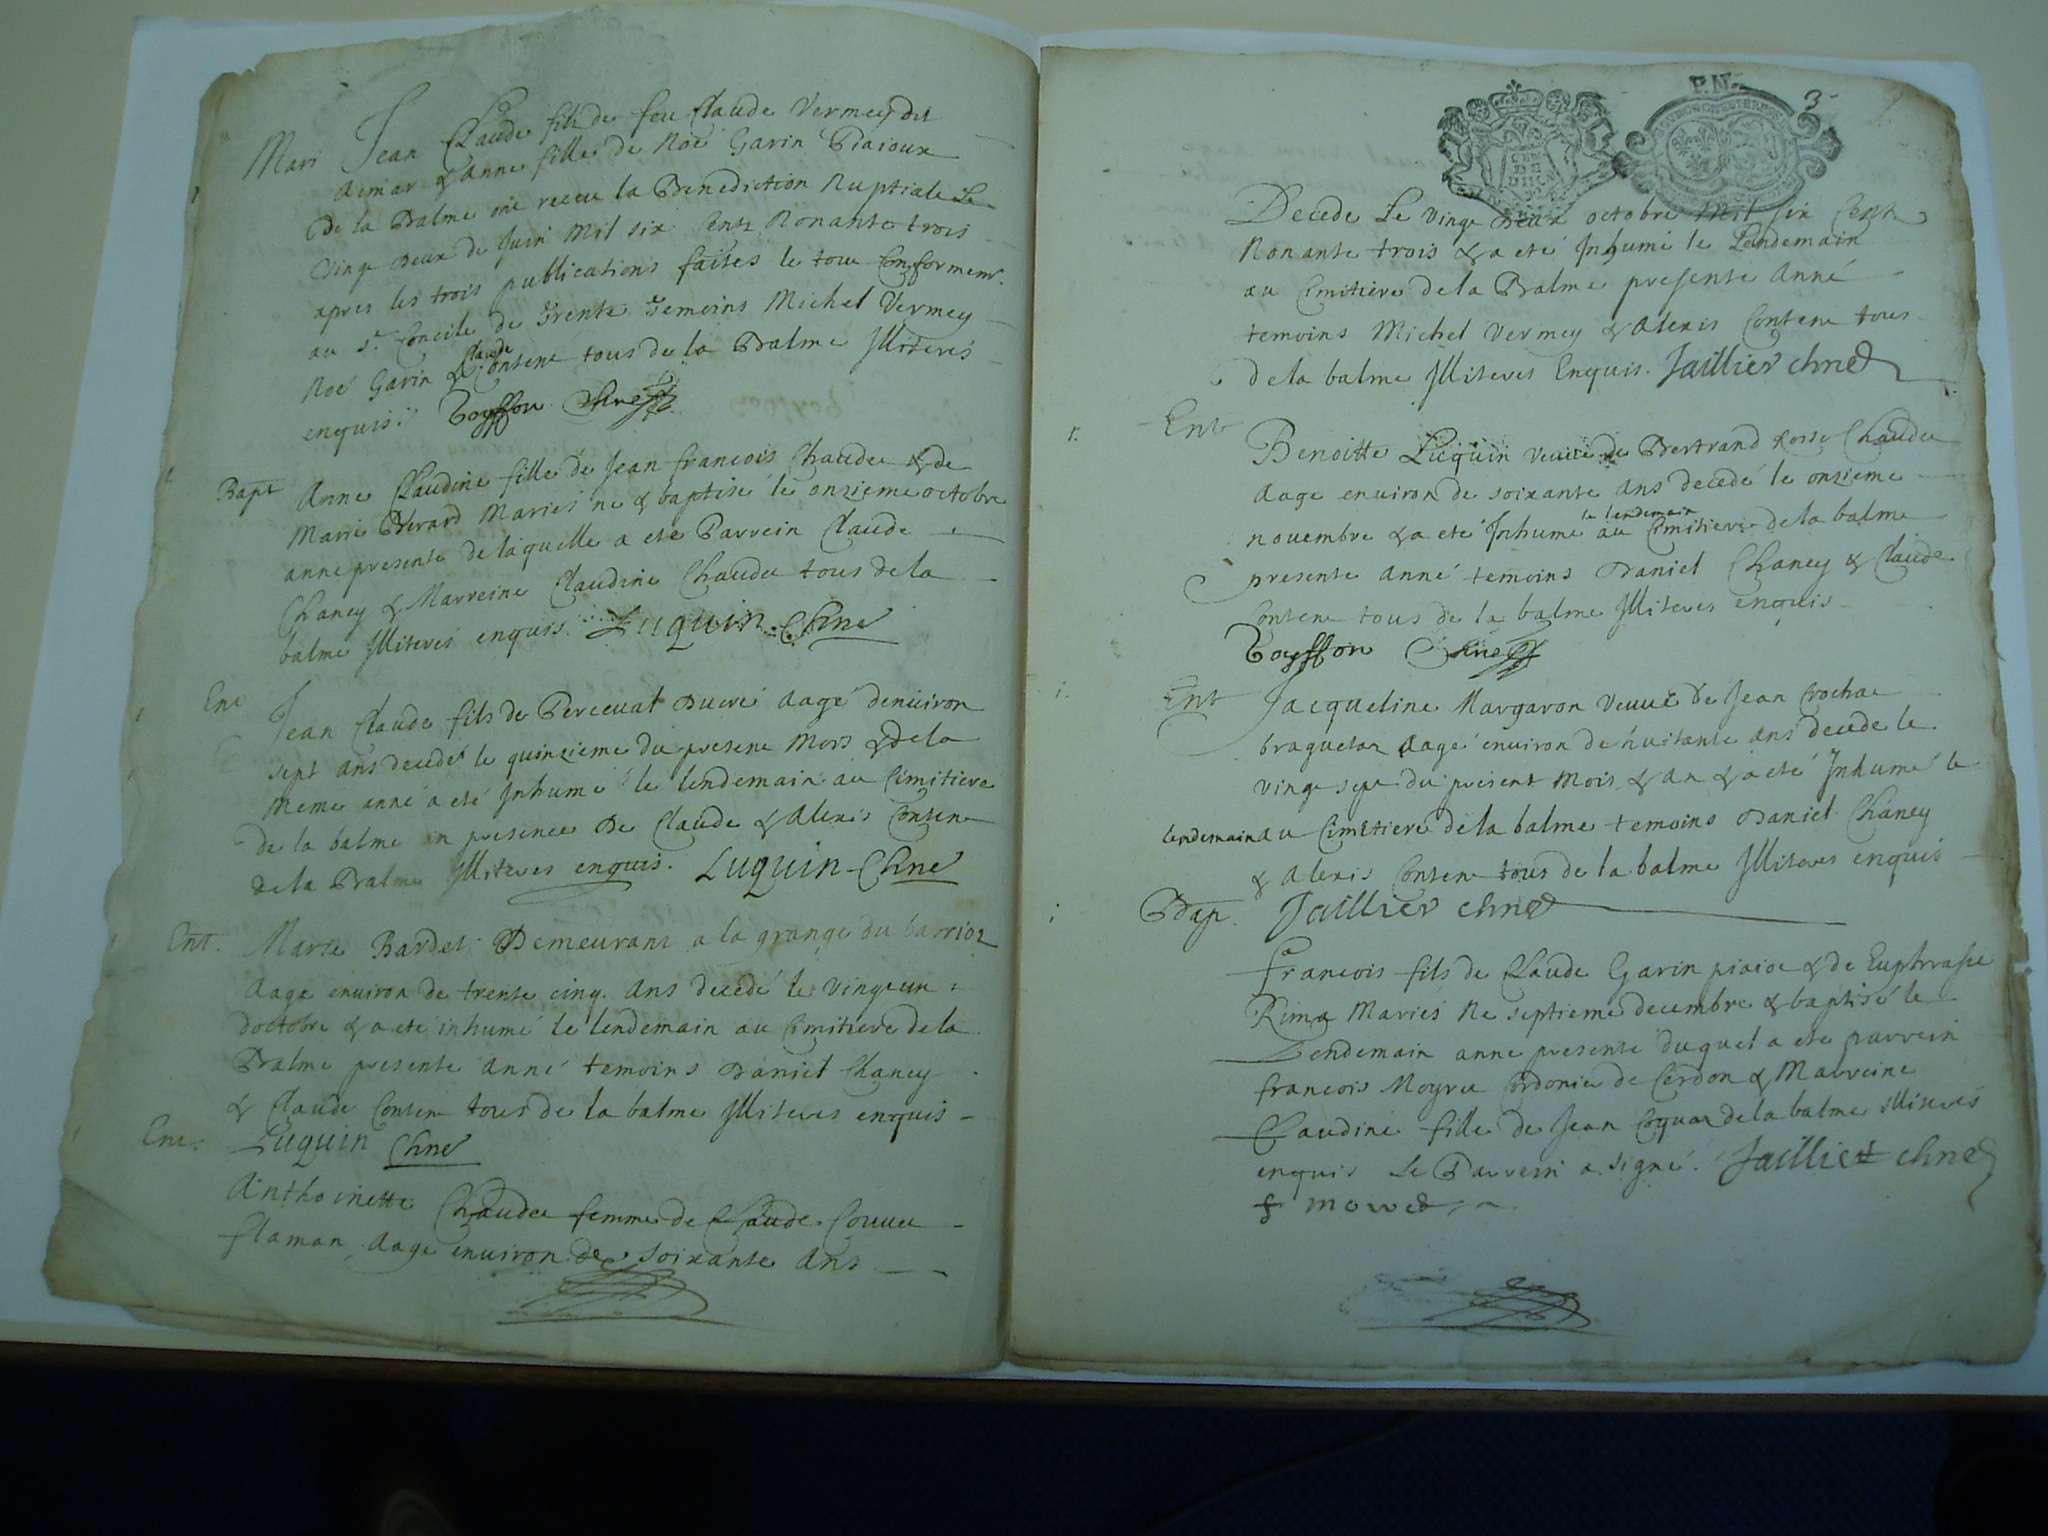 Mari Jean Claude fils de feu Claude Vermey dit
Aimar & Anne fille de Noé Gavin Piaioux
De la Balme ont receu la Benediction Nuptiale Le
vingt Deux de Juin Mil six Cents Nonante trois
apres les trois publications faites le tout Conformemt.
au St. Concile de Trente Temoins Michel Vermey
Claude
Noé Gavin & Contene tous de la Balme Illiterés
enquis. Toyffon Chne
Bapt Anne Claudine fille de Jean francois Chaudee & de
Marie Berard Mariés né & baptisé le onzieme octobre
anne presente de laquelle a eté Parrein Claude
Chaney & Marreine Claudine Chaudee tous de la
balme Illiterés enquis. Luquin Chne
Ent Jean Claude fils de Percevat Ducré aagé denviron
sept ans decedé le quinzieme du present Mois & de la
Meme anné a eté Inhumé le lendemain au Cimitiere
de la balme en presence De Claude & Alexis Conten
de la Balme Illiterés enquis. Luquin Chne
Ent. Marie Bardet Demeurant a la grange du barrioz
aage environ de trente cinq ans decedé le Vingt un
doctobre & a eté inhumé le lendemain au Cimitiere de la
Balme presente anné temoins Daniel Chaney
& Claude Conten tous de la balme Illiterés enquis
Ent. Luquin Chne
Anthoinette Chaudee femme de Claude Couvee
flaman aage environ de soixante ans
P.N.
3
Decede Le vingt Deux octobre Mil six Cent
Nonante trois & a eté Inhumé le Lendemain
au Cimitiere de la Balme presente Anné
temoins Michel Vermey & Alexis Conten tous
de la balme Illiteres Enquis. Jaillier chne
Ent Benoitte Luquin veuve de Bertrand Chaudee
aage environ de soixante ans decedé le onzieme
le lendemain
novembre & a eté Inhumé au Cimitiere de la balme
presente anné temoins Daniel Chaney & Claude
Conten tous de la balme Illiteres enquis
Toyffon Chne
Ent Jacqueline Margaron Veuve de Jean Crochat
braguetan aagé environ de huitante ans decede le
vingt sept du présent Mois & an & a eté Inhumé le
lendemain au Cimetiere de la balme temoins Daniel Chaney
& Alexis Conten tous de la balme Illiteres enquis
Bap. Jaillier chne
francois fils de Claude Gavin piaioe & de Euphrasie
Rima Mariés Né septieme decembre & baptisé le
Lendemain anne presente duquel a ete parrein
francois Moyret Cordonier de Cerdon & Marreine
Claudine fille de Jean Coquaz de la balme Illiterés
enquis Le Parrein a signé. Jaillier chne
f mowed